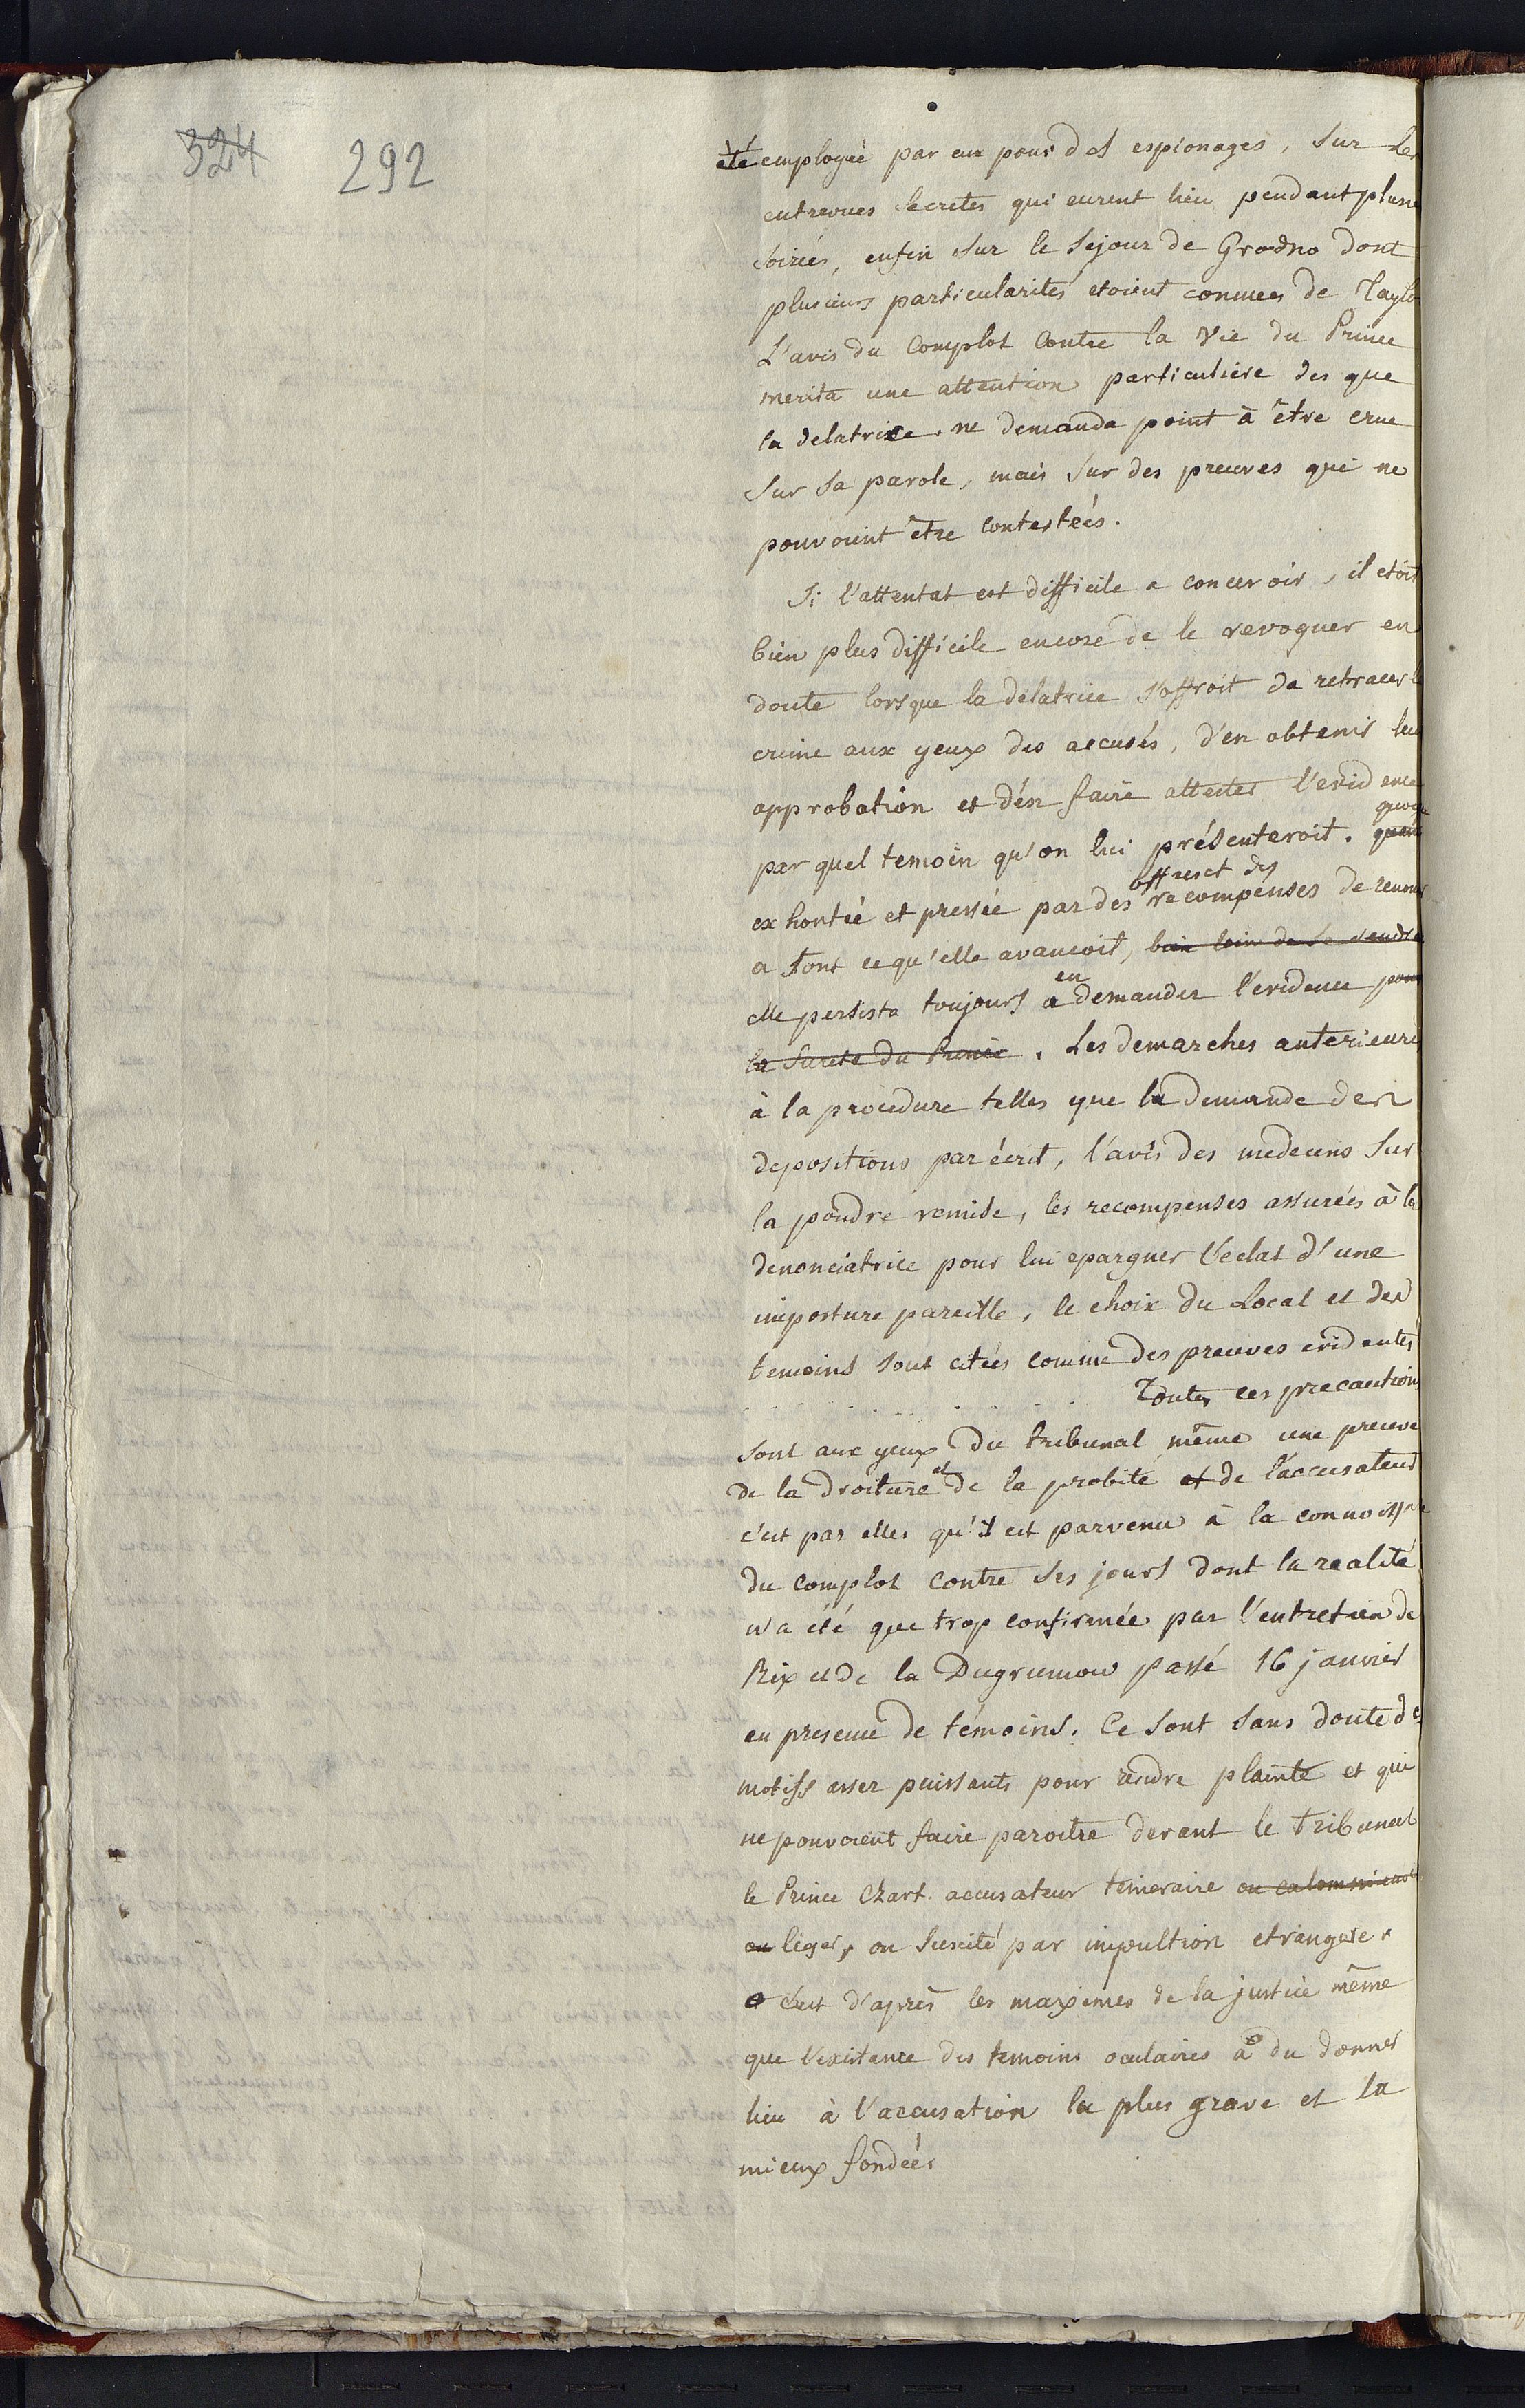 324 292
été employée par eux pour des espionages, sur les
entrevues secretes qui eurent lieu pendant plusie
soirées, enfin sur le sejour de Grodno dont
plusieurs particularités etoient connues de Taylo
L'avis du complot contre la vie du Prince
merita une attention particuliere des que
la delatrice ne demanda point à être crue
sur sa parole, mais sur des preuves qui ne
pouvoient être contestées.
Si l'attentat est difficile a concevoir, il etoit
bien plus difficile encore de le revoquer en
doute lorsque la délatrice s'offroit de retracer le
crime aux yeux des accusés, d'en obtenir leu
approbation et d'en faire attester l'evidence
quoiqu
par quel temoin qu'on lui présenteroit.
offres et des
exhortée et pressée par des recompenses de renon
a tout ce qu'elle avancoit, bien loin de se rendre
en
elle persista toujours a demander l'evidence pour
la sureté du Prince. Les demarches anterieures
à la procedure telles que la demande des
depositions par écrit, l'avis des medecins sur
la poudre remise, les recompenses assurées à la
denonciatrice pour lui epargner l'eclat d'une
imposture pareille, le choix du Local et des
temoins sont citées comme des preuves evidentes
. . . . . . . Toutes ces precautions
sont aux yeux du tribunal même une preuve
et
de la droiture de la probité et de l'accusateur
c'est par elles qu'il est parvenu à la connoissance
du complot contre ses jours dont la realité
n'a été que trop confirmée par l'entretien de
Rix et de la Dugrumow passé 16 janvier
en presence de témoins. Ce sont sans doute des
motifs assez puissants pour rendre plainte et qui
ne pouvoient faire paroitre devant le tribunal
le Prince Czart. accusateur temeraire ou calomniant
ou léger, ou suscité par impultion etrangere.
C'est d'après les maximes de la justice même
que l'existance des temoins oculaires a du donner
lieu à l'accusation la plus grave et la
mieux fondée.